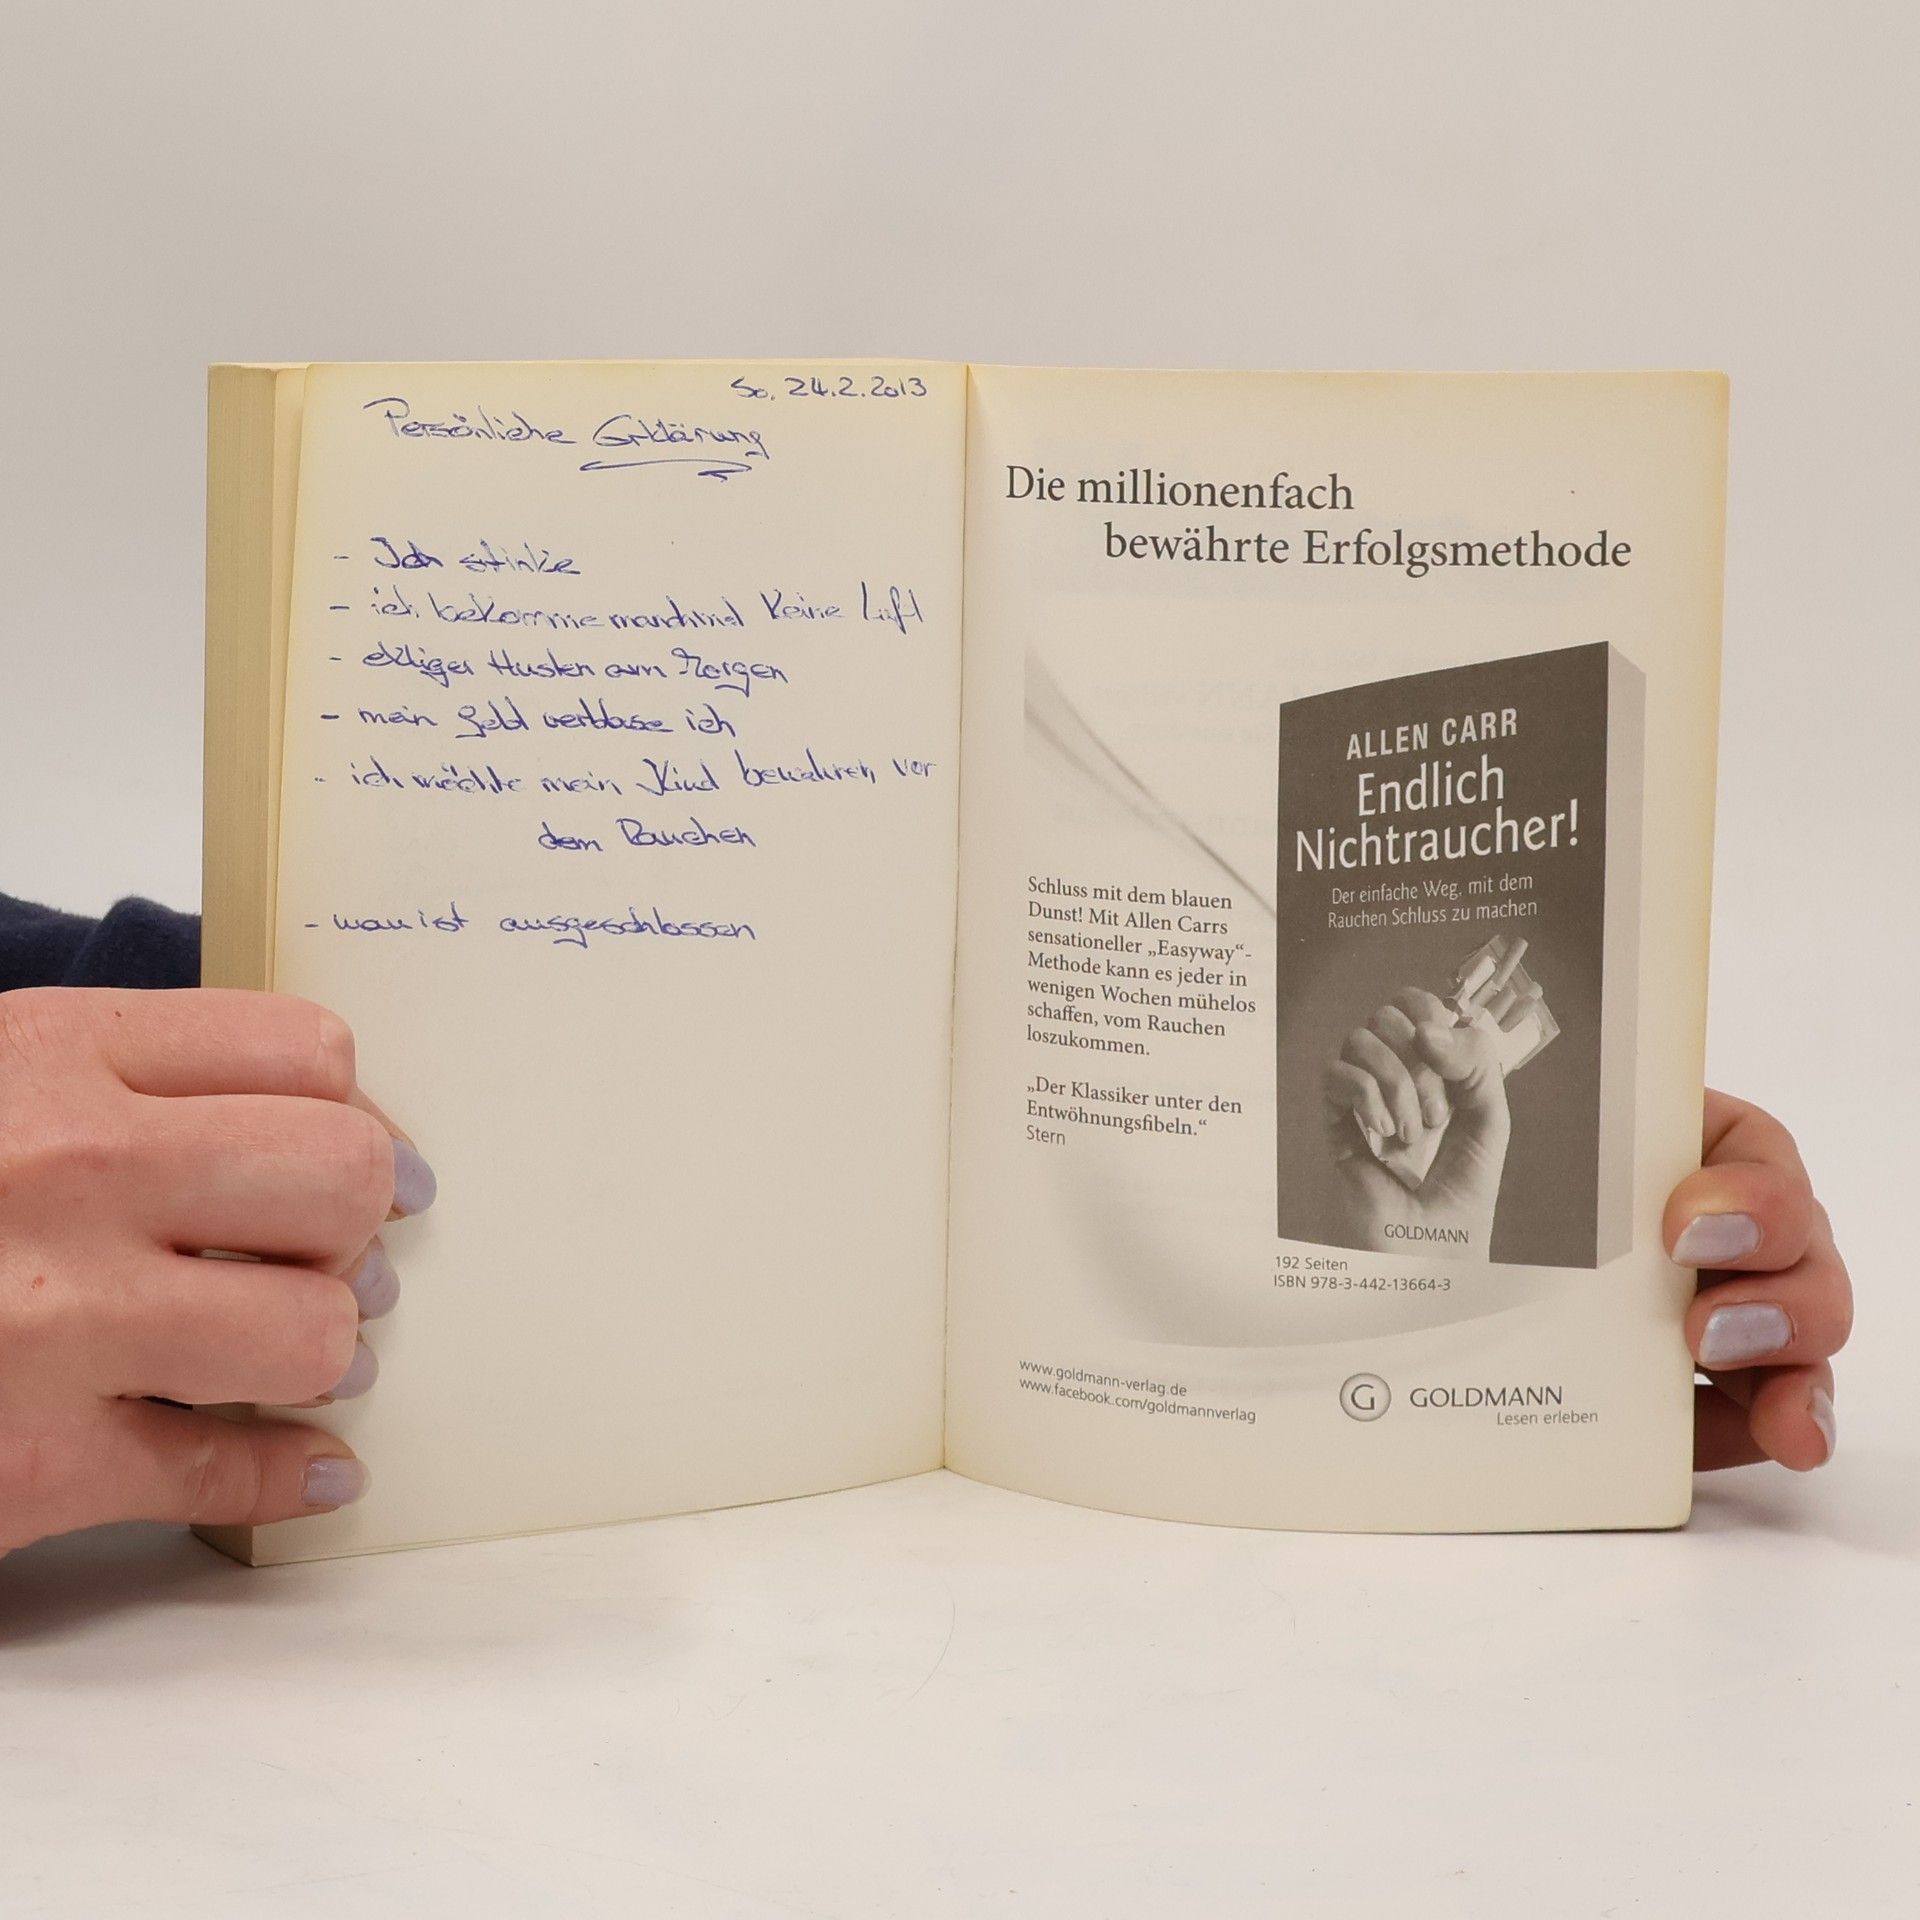 So. 24.2.2013
Persönliche Erklärung
- Ich stinke
- ich bekomme manchmal keine Luft
- ekliger Husten am Morgen
- mein Geld verblase ich
- ich möchte mein Kind bewahren vor
dem Rauchen
- man ist ausgeschlossen
Die millionenfach
bewährte Erfolgsmethode
ALLEN CARR
Endlich
Nichtraucher!
Der einfache Weg, mit dem
Rauchen Schluss zu machen
GOLDMANN
Schluss mit dem blauen
Dunst! Mit Allen Carrs
sensationeller „Easyway“-
Methode kann es jeder in
wenigen Wochen mühelos
schaffen, vom Rauchen
loszukommen.
„Der Klassiker unter den
Entwöhnungsfibeln.“
Stern
192 Seiten
ISBN 978-3-442-13664-3
www.goldmann-verlag.de
www.facebook.com/goldmannverlag
G GOLDMANN
Lesen erleben